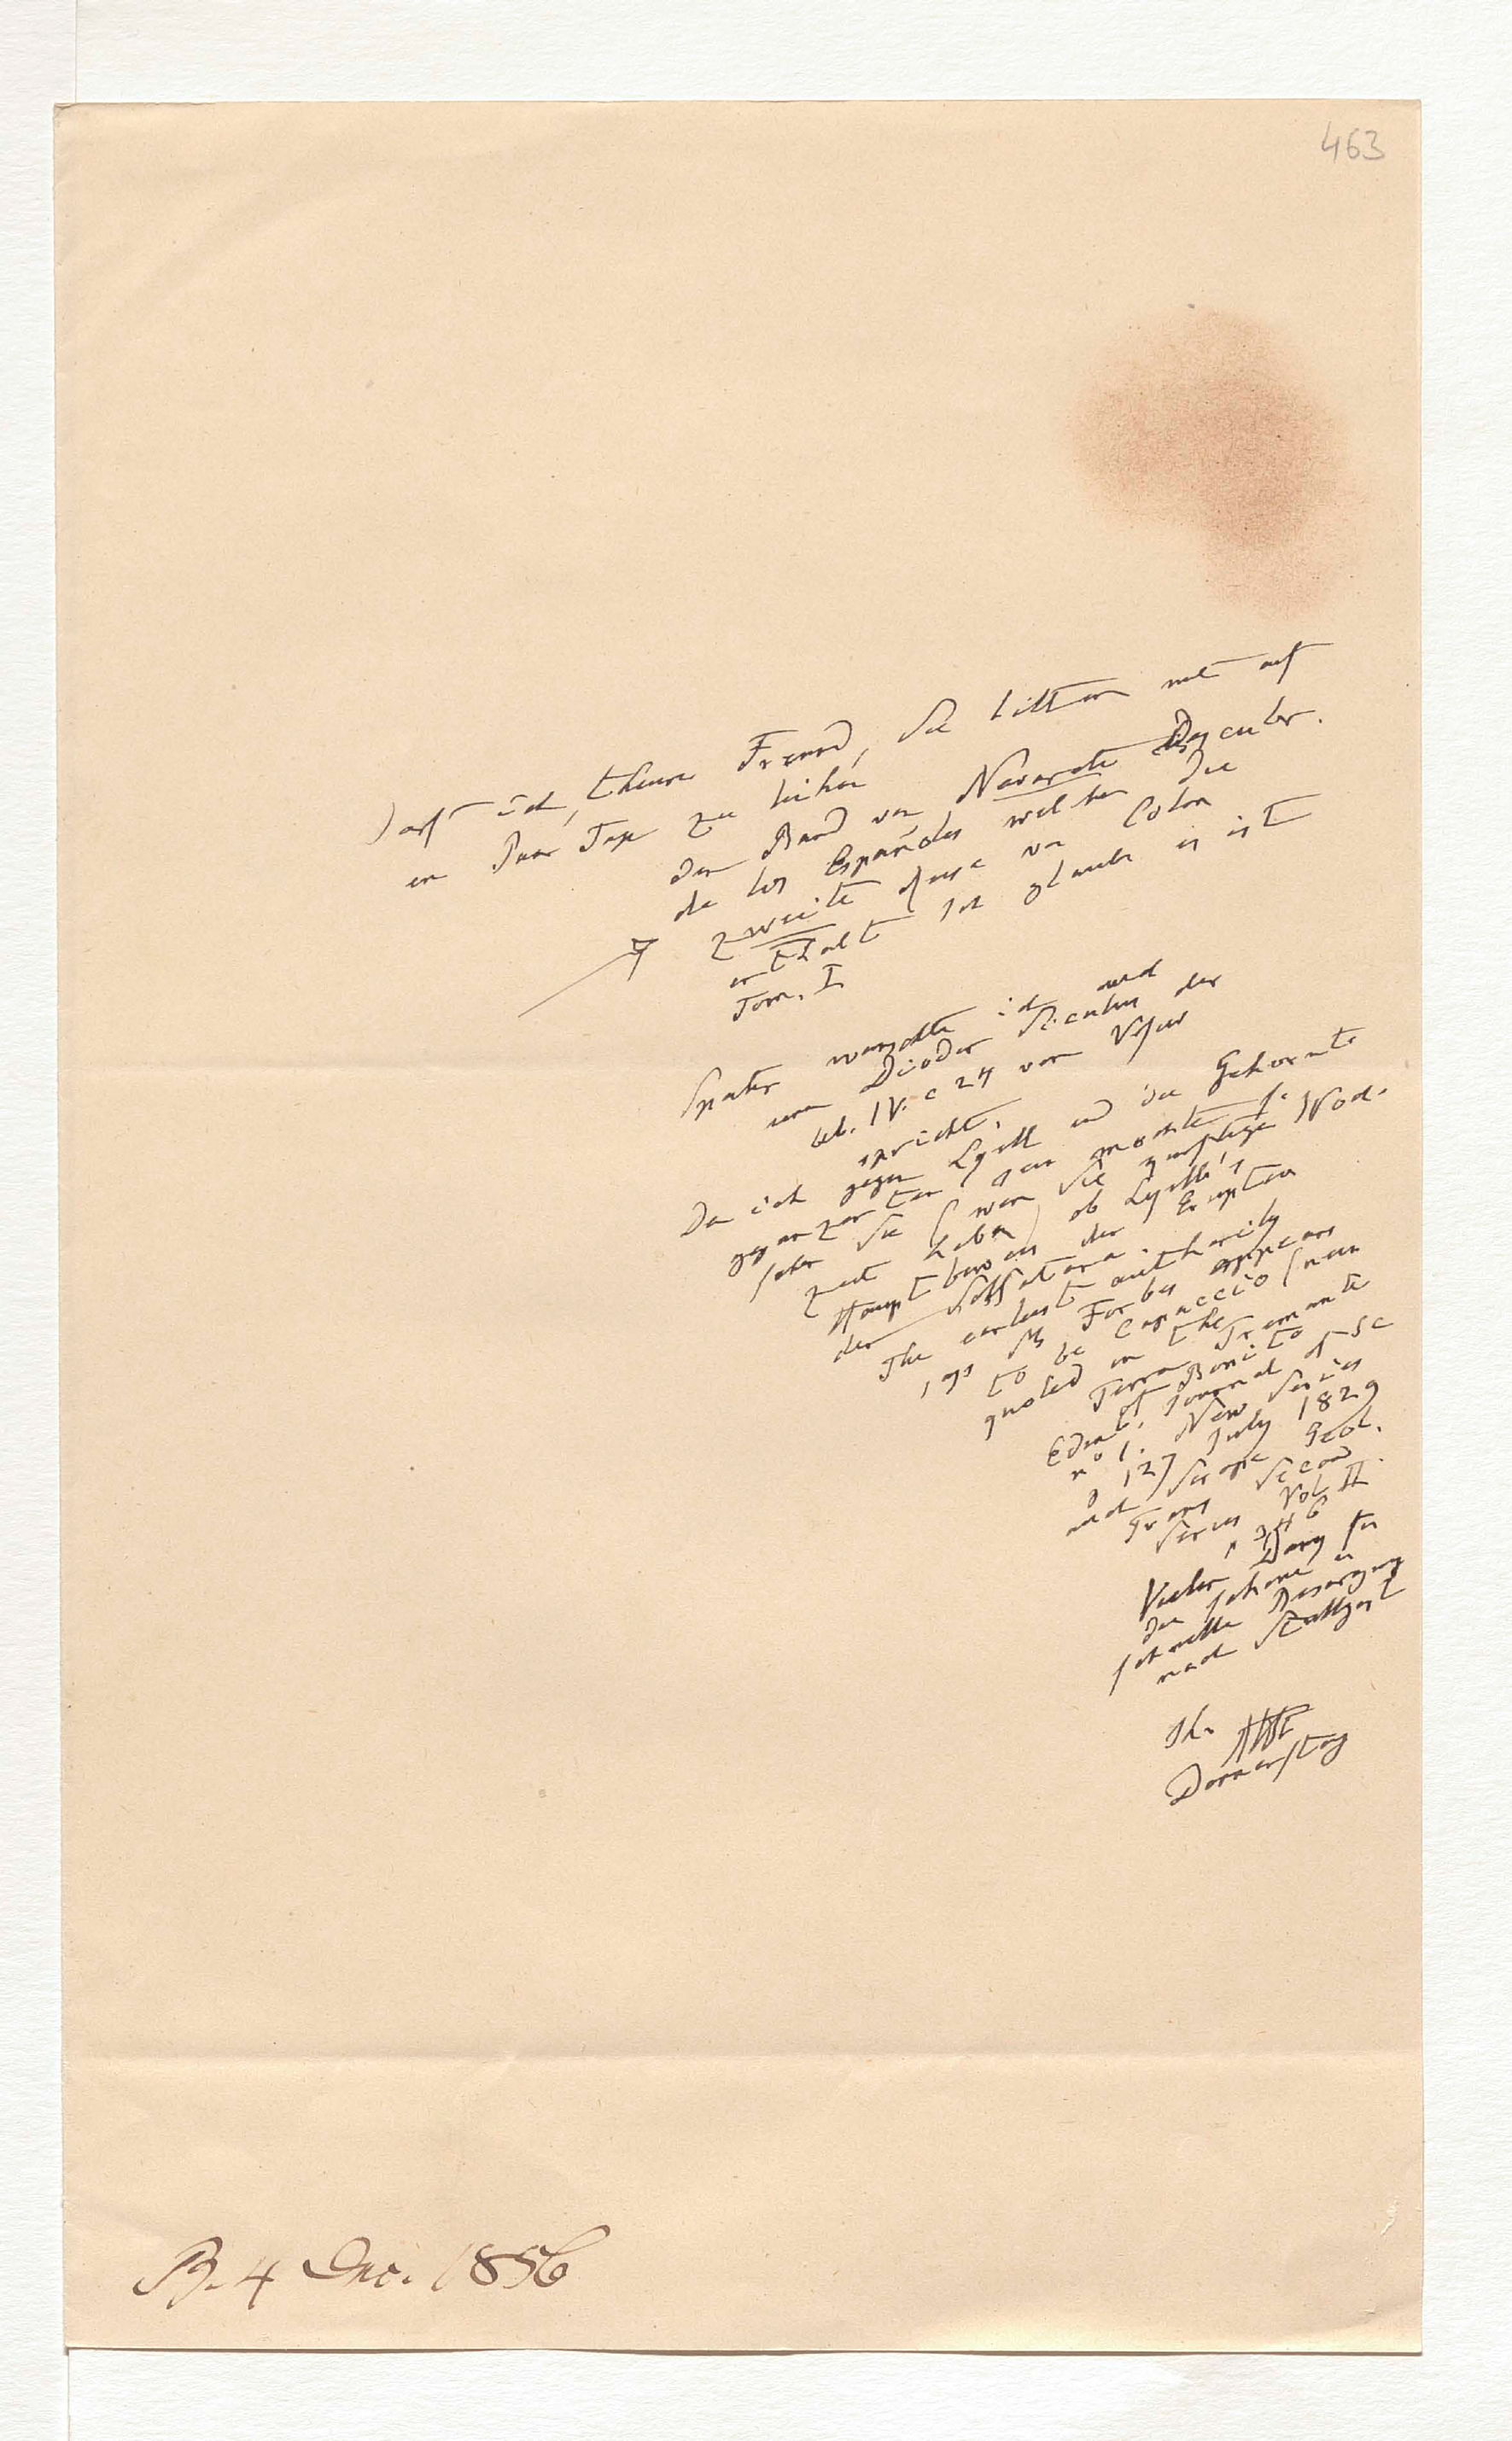 463
Darf ich, theurer Freund, Sie bitten mir auf
ein Paar Tage zu leihen
den Band von Navarete Descubr.
de los Españoles welcher die
zweite Reise von Colon
enthält Ich glaube es ist
Tom. I
Später wünschte ich auch
wenn Diodor Siculus der
lib. IV. c 24 vom Vesuv
spricht.
Da ich gegen Lyell und die
gern möchte
Sie (wenn Sie Zeit
haben) ob Lyell's
Hauptbeweis der Eruption
der Solfatara.
The earliest authority
says M Forbes appears
to be Capaccio
quoted in the
Terra Tremante
of Bonito
Edinb. Journal of Sc
n° 1. New Series
p 127 July 1829
und Scrope Geol.
Trans Second
Series Vol II
p 346
Vielen Dank für
die schöne
schnelle Besorgung
nach Stuttgart
Ihr AHt
Donnerstag
B. 4 Dec. 1856